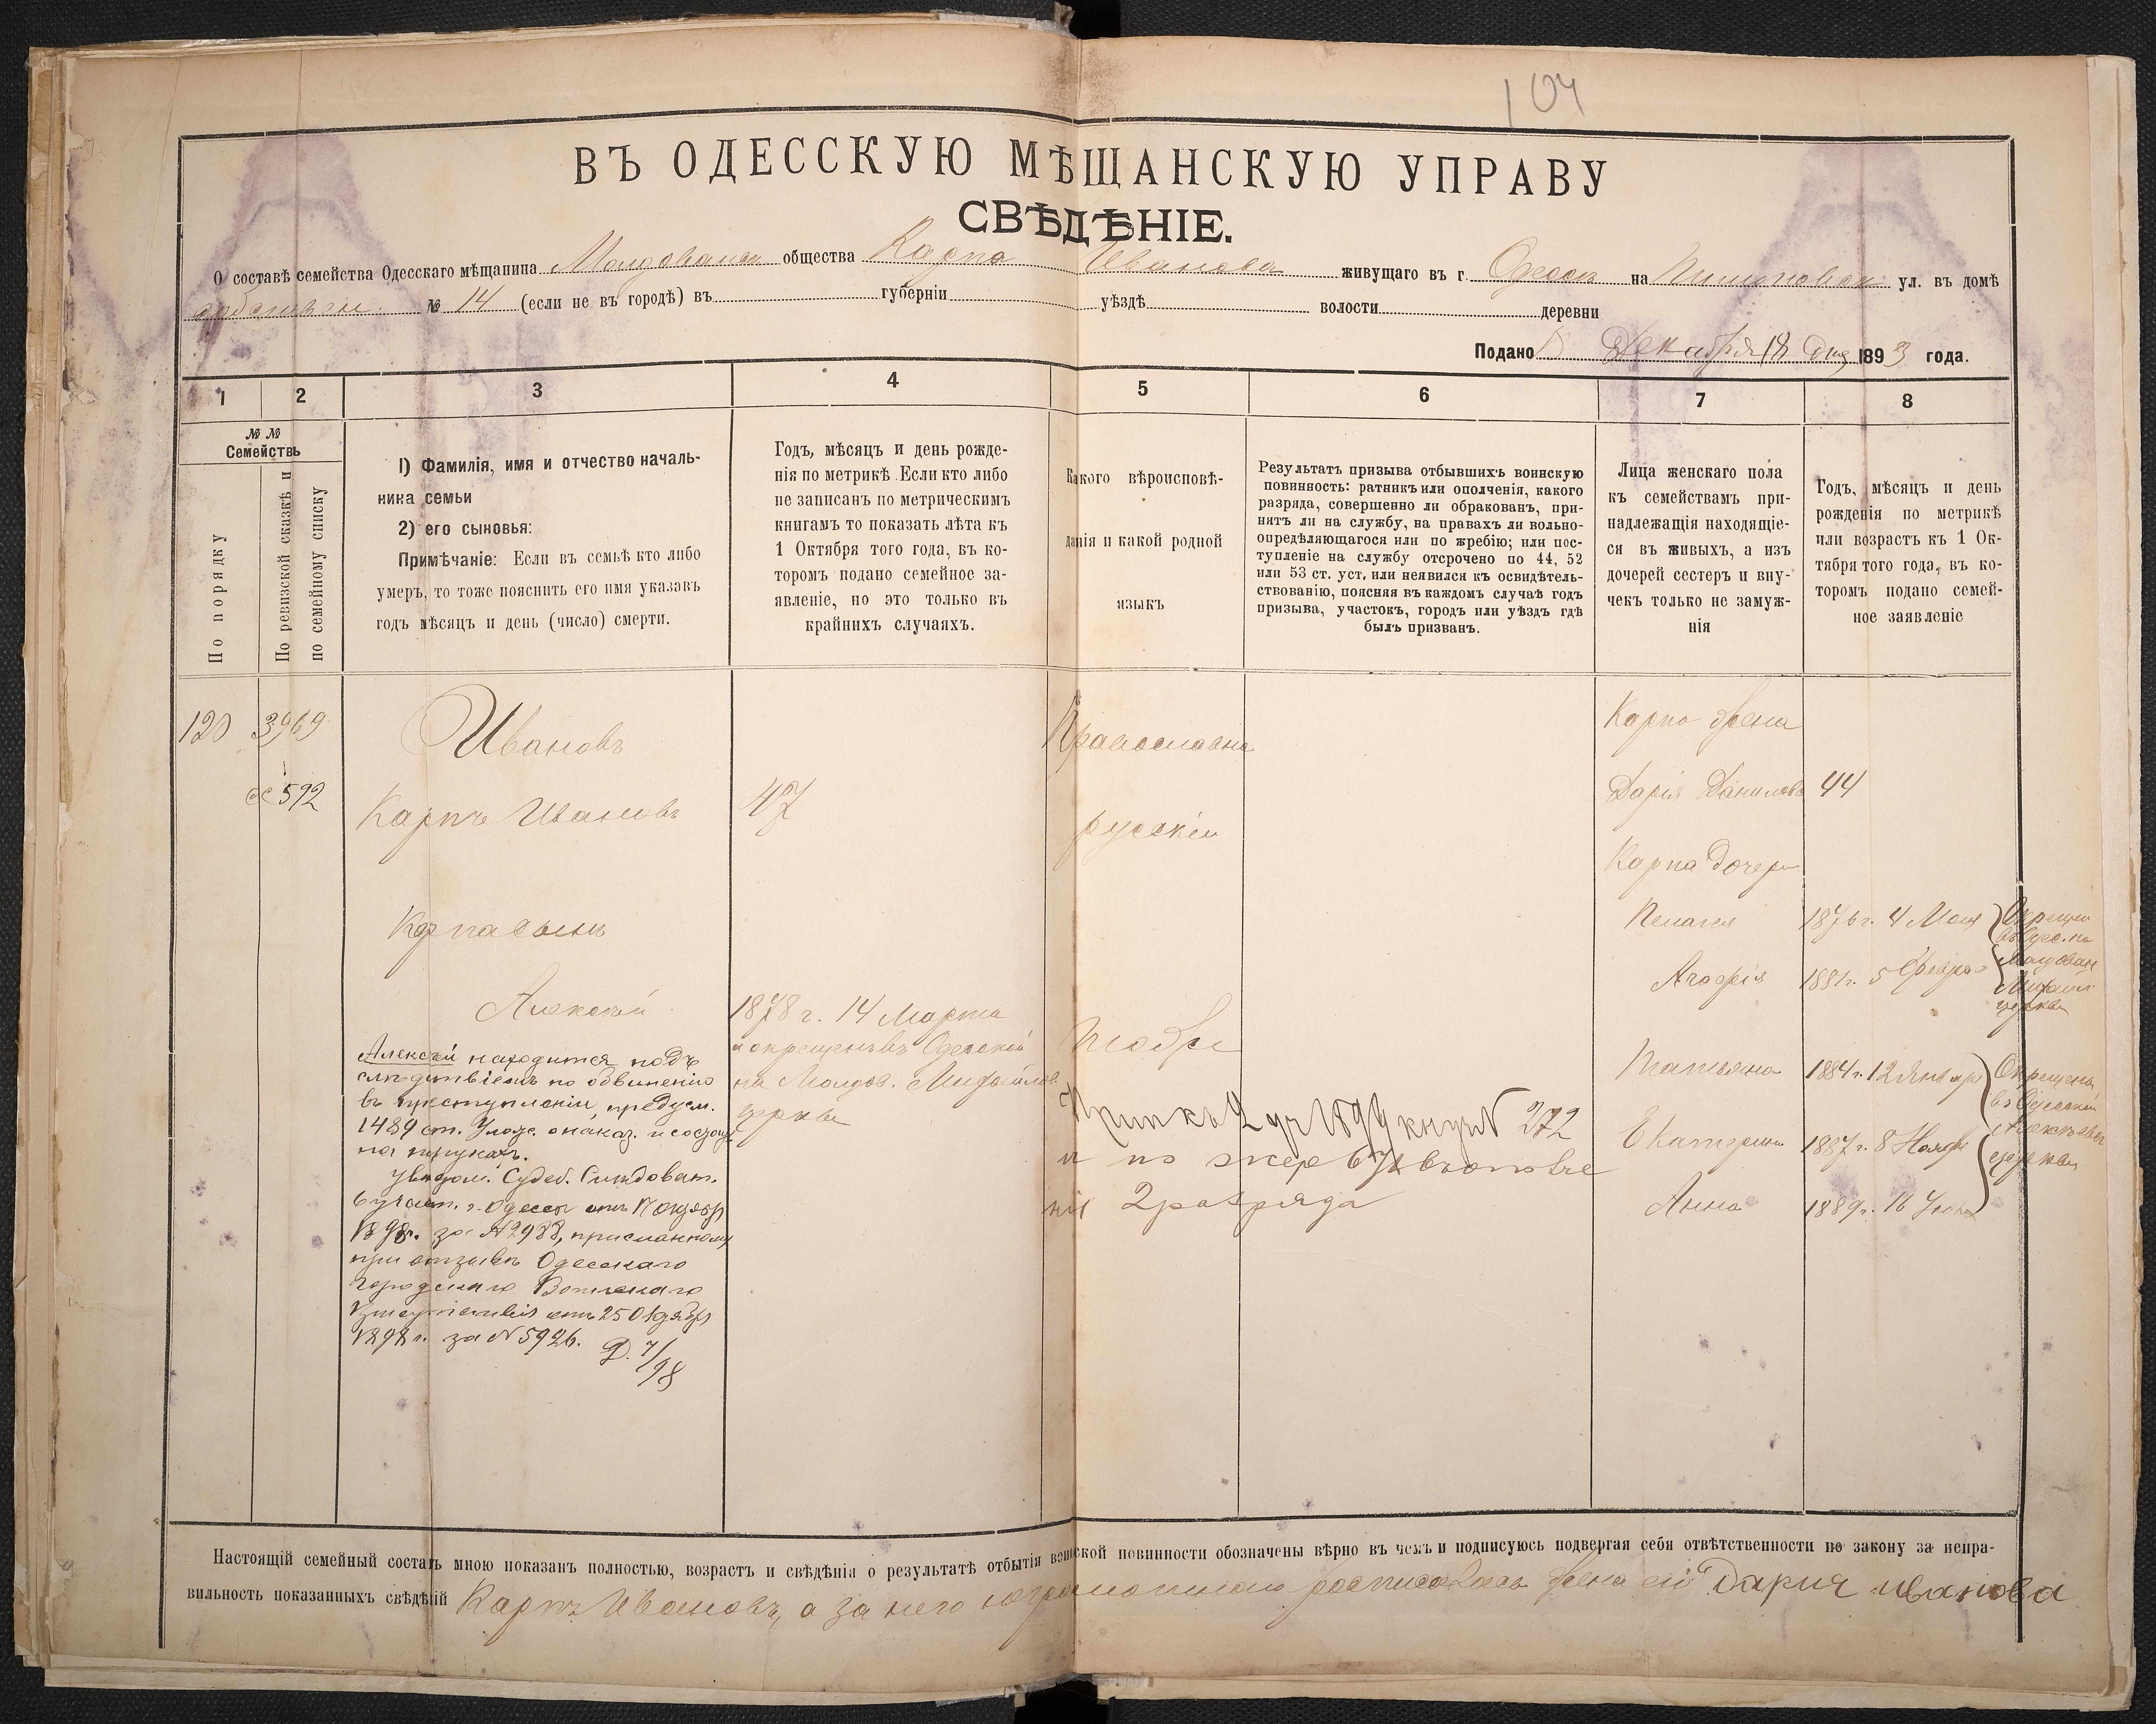 104
ВЪ ОДЕССКУЮ МѢЩАНСКУЮ УПРАВУ
СВѢДѢНІЕ.
О составѣ семейства Одесскаго мѣщанина Молдованск общества Карпа Иванова живущаго въ г. Одессѣ на ул. въ домѣ
собствен. № 14 (если не въ городѣ) въ губерніи уѣздѣ волости деревни
Подано Декабря 18 дня 1893 года.
1 2 3 4 5 6 7 8
№ №
Семействъ
По порядку
По ревизской сказкѣ и
по семейному списку
1) Фамилія, имя и отчество началь-
ника семьи
2) его сыновья:
Примѣчаніе: Если въ семьѣ кто либо
умеръ, то тоже пояснить его имя указавъ
годъ мѣсяцъ и день (число) смерти.
Годъ, мѣсяцъ и день рожде-
нія по метрикѣ. Если кто либо
не записанъ по метрическимъ
книгамъ то показать лѣта къ
1 Октября того года, въ ко-
торомъ подано семейное за-
явленіе, но это только въ
крайнихъ случаяхъ.
Какого вѣроисповѣ-
данія и какой родной
языкъ
Результатъ призыва отбывшихъ воинскую
повинность: ратникъ или ополченія, какого
разряда, совершенно ли обракованъ, при-
нятъ ли на службу, на правахъ ли вольно-
опредѣляющагося или по жребію; или пос-
тупленіе на службу отсрочено по 44, 52
или 53 ст. уст. или неявился къ освидѣтель-
ствованію, поясняя въ каждомъ случаѣ годъ
призыва, участокъ, городъ или уѣздъ гдѣ
былъ призванъ.
Лица женскаго пола
къ семействамъ при-
надлежащія находящіе-
ся въ живыхъ, а изъ
дочерей сестеръ и вну-
чекъ только не замуж-
нія
Годъ, мѣсяцъ и день
рожденія по метрикѣ
или возрастъ къ 1 Ок-
тября того года, въ ко-
торомъ подано семей-
ное заявленіе
120 3969
592
Ивановъ
Карпъ Ивановъ
47
Карпа сынъ
Алексѣй
1878 г. 14 Марта
и окрещенъ въ Одесской
на Молдов. Михайлов.
церкви
Алексѣй находится подъ
слѣдствіемъ по обвиненію
въ преступленіи, предусм.
1489 ст. Улож. о наказ. и состоитъ
на порукахъ.
Увѣдом. Судеб. Слѣдоват.
6 участ. г. Одессы отъ 17 Октября
1898 г. за № 2988, присланному
при отзывѣ Одесскаго
Городскаго Воинскаго
Присутствія отъ 25 Октября
1898 г. за № 5926.
7/98
Православна
русскій
2 уч 1899 372
и по жер 671 въ ополче
ніе 2 разряда
Карпа жена
Дарія Данилова 44
Карпа дочери
Пелагея 1876 г. 4 Мая
Агафія 1881 г. 5 Февра
Окрещен
въ Одес. на
Молдован
Михайл
церкви
Татьяна 1884 г. 12 Января
Екатерина 1887 г. 8 Ноября
Анна 1889 г. 16
Окрещены
въ Одесской
Алексѣевс
церкви
Настоящій семейный составъ мною показанъ полностью, возрастъ и свѣдѣнія о результатѣ отбытія воинской повинности обозначены вѣрно въ чемъ и подписуюсь подвергая себя отвѣтственности по закону за непра-
вильность показанныхъ свѣдѣній Карпъ Ивановъ, а за него неграмотнаго росписалась жена его Дария иванова